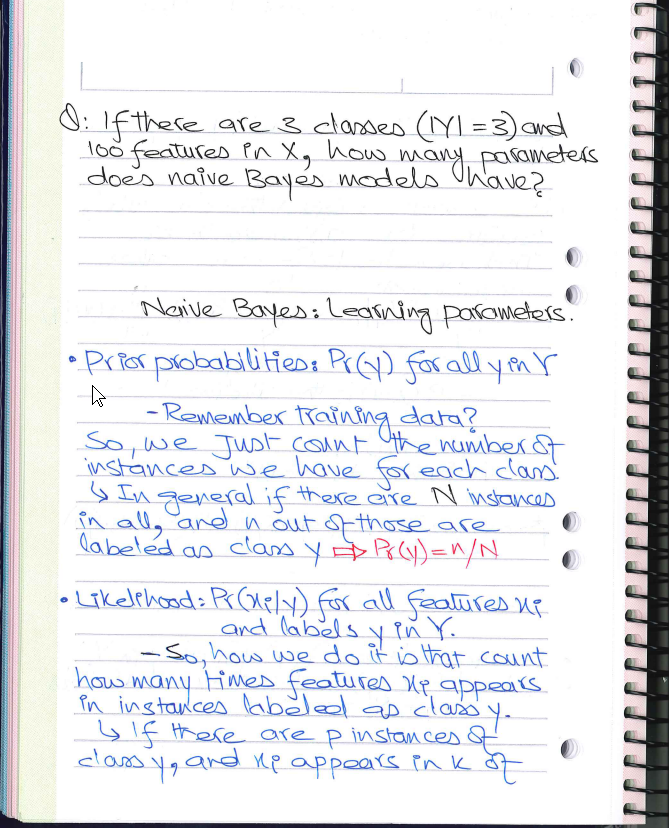 Q: If there are 3 classes (|Y| = 3) and
100 features in X, how many parameters
does naive Bayes models have?
Naive Bayes: Learning parameters.
• Prior probabilities: Pr(y) for all y in Y
- Remember training data?
So, we Just count the number of
instances we have for each class.
↳ In general if there are N instances
in all, and n out of those are
labeled as class y ⇒ Pr(y) = n/N
• Likelihood: Pr(xi/y) for all features xi
and labels y in Y.
- So, how we do it is that count
how many times features xi appears
in instances labeled as class y.
↳ If there are p instances of
class y, and xi appears in k of